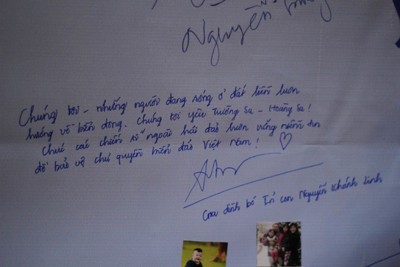 Nguyễn
Chúng tôi - những người đang sống ở đất liền luôn
hướng về biển đông. Chúng tôi yêu Trường Sa - Hoàng Sa!
Chúc các chiến sĩ ngoài hải đảo luôn vững niềm tin
để bảo vệ chủ quyền biển đảo Việt Nam!
Gia đình bé Tí con Nguyễn Khánh Linh